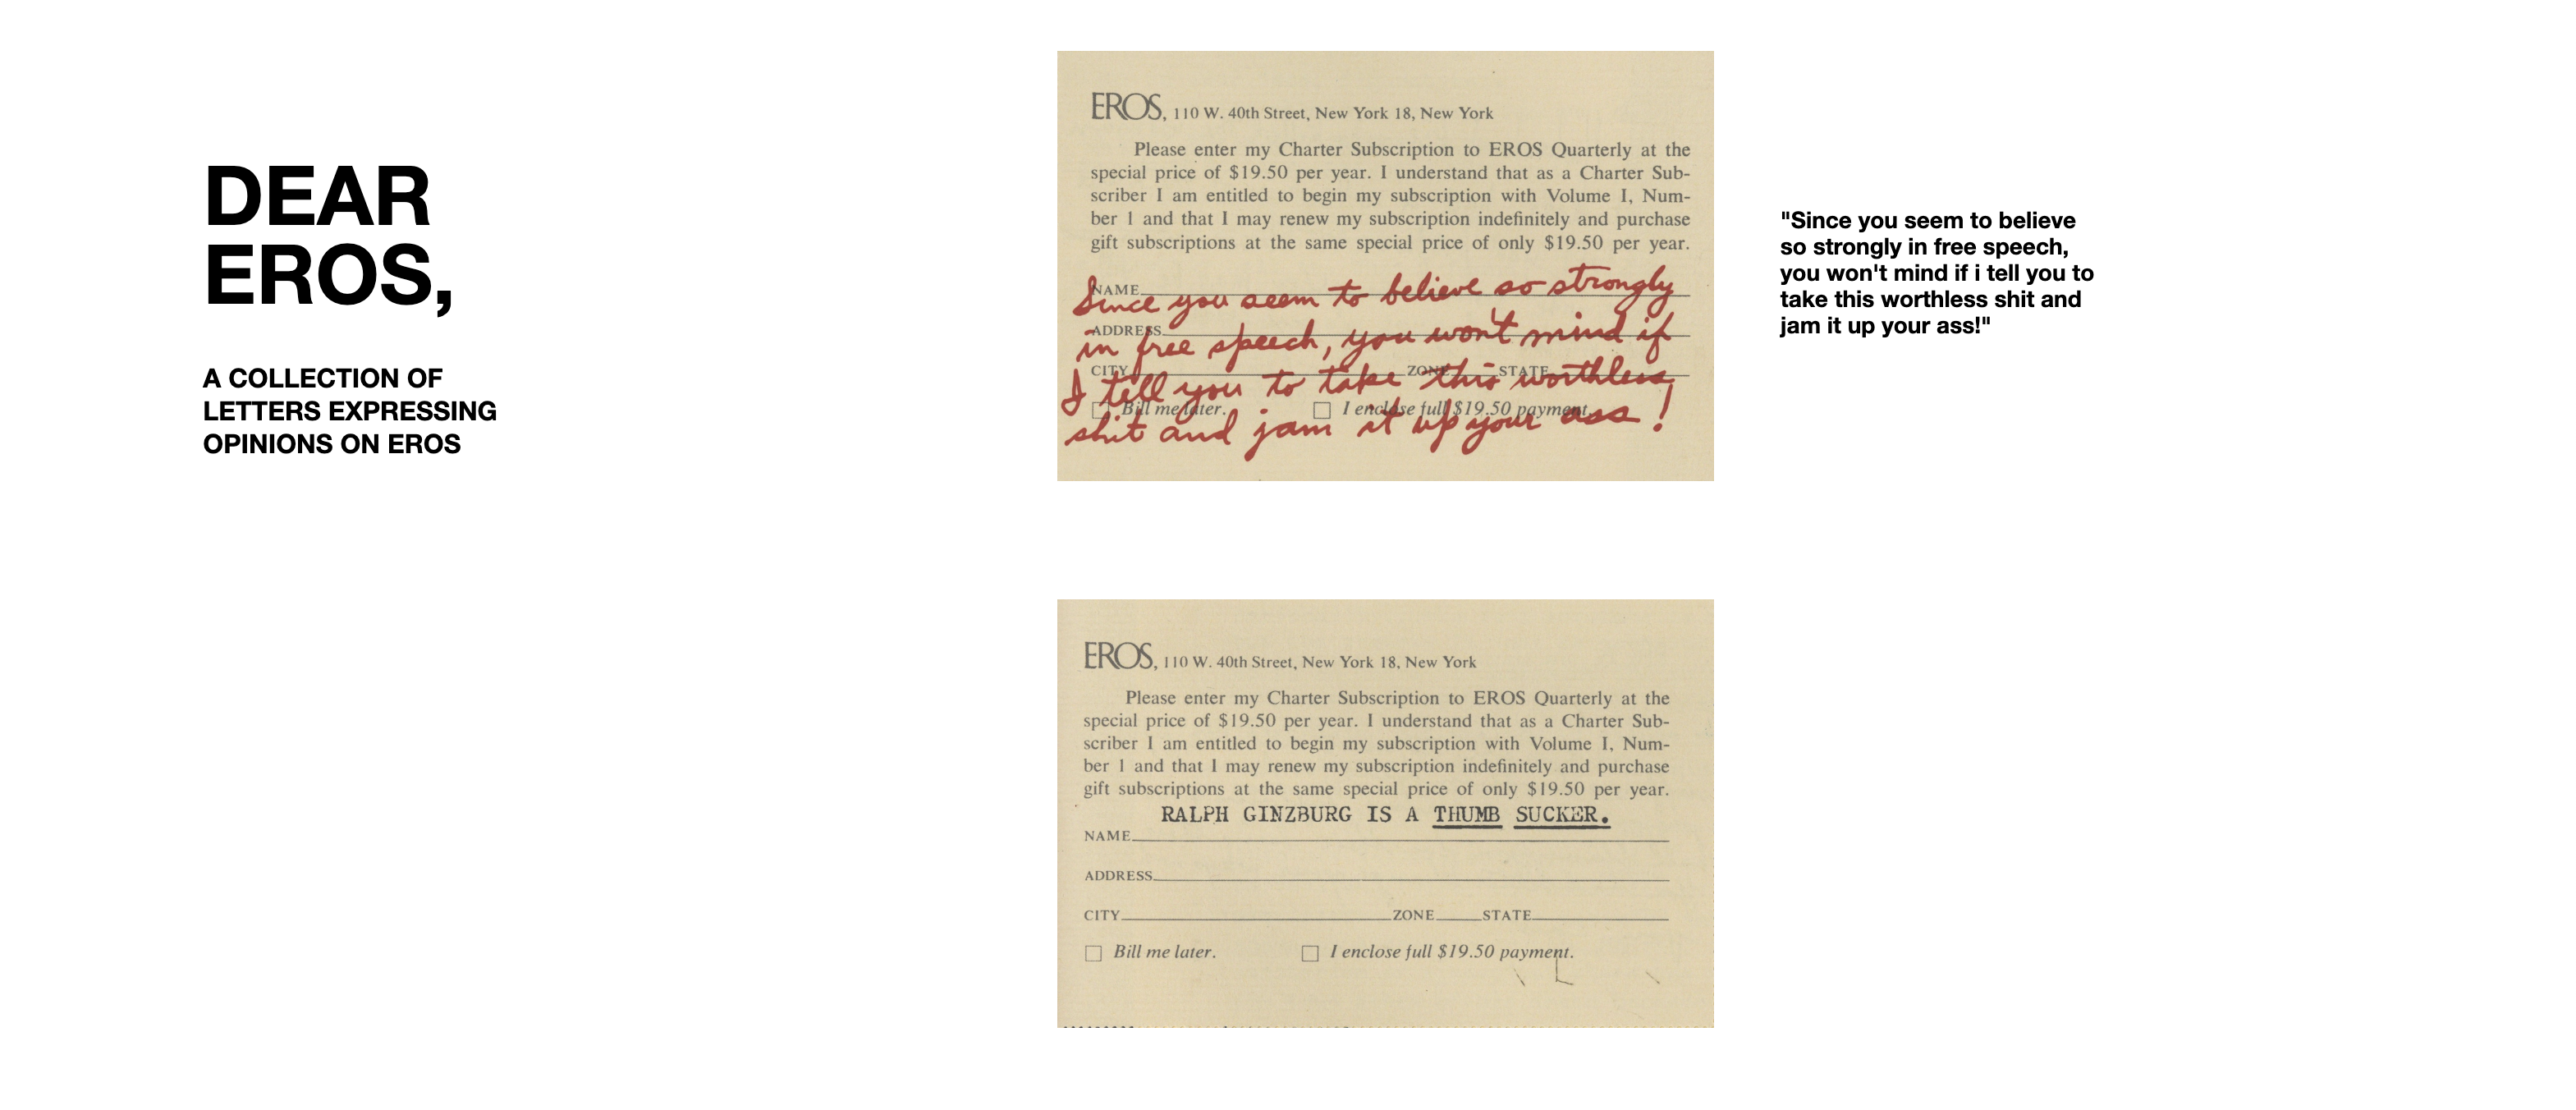 DEAR
EROS,
A COLLECTION OF
LETTERS EXPRESSING
OPINIONS ON EROS
EROS, 110 W. 40th Street, New York 18, New York
Please enter my Charter Subscription to EROS Quarterly at the
special price of $19.50 per year. I understand that as a Charter Sub-
scriber I am entitled to begin my subscription with Volume I, Num-
ber 1 and that I may renew my subscription indefinitely and purchase
gift subscriptions at the same special price of only $19.50 per year.
NAME
Since you seem to believe so strongly
ADDRESS
in free speech, you won't mind if
CITY ZONE STATE
I tell you to take this worthless
Bill me later. I enclose full $19.50 payment.
shit and jam it up your ass!
"Since you seem to believe
so strongly in free speech,
you won't mind if i tell you to
take this worthless shit and
jam it up your ass!"
EROS, 110 W. 40th Street, New York 18, New York
Please enter my Charter Subscription to EROS Quarterly at the
special price of $19.50 per year. I understand that as a Charter Sub-
scriber I am entitled to begin my subscription with Volume I, Num-
ber 1 and that I may renew my subscription indefinitely and purchase
gift subscriptions at the same special price of only $19.50 per year.
RALPH GINZBURG IS A THUMB SUCKER.
NAME
ADDRESS
CITY ZONE STATE
Bill me later. I enclose full $19.50 payment.